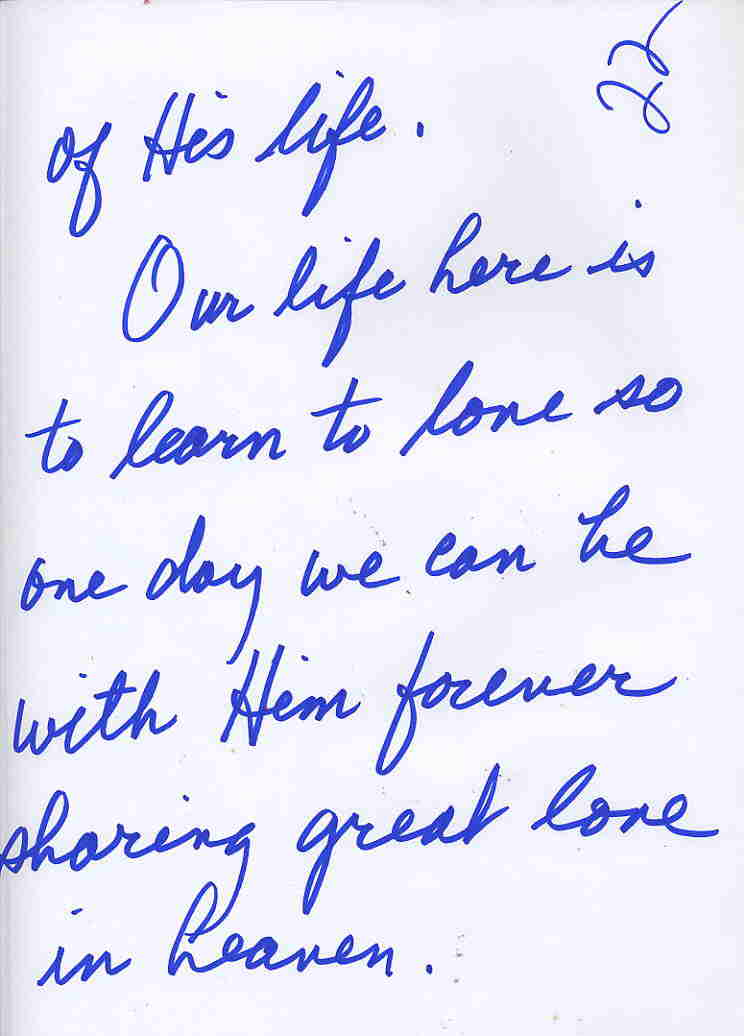 22
of His life.
Our life here is
to learn to love so
one day we can be
with Him forever
sharing great love
in heaven.